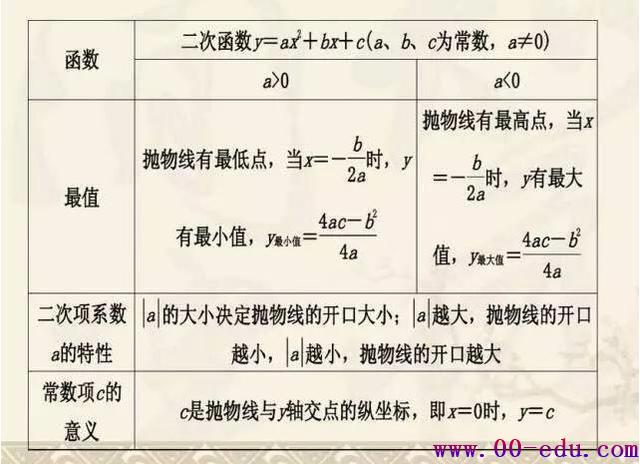 函数
二次函数y=ax²+bx+c(a、b、c为常数，a≠0)
a>0
a<0
最值
抛物线有最低点，当x=-b/2a时，y
有最小值，y最小值=(4ac-b²)/4a
抛物线有最高点，当x
=-b/2a时，y有最大
值，y最大值=(4ac-b²)/4a
二次项系数
a的特性
|a|的大小决定抛物线的开口大小；|a|越大，抛物线的开口
越小，|a|越小，抛物线的开口越大
常数项c的
意义
c是抛物线与y轴交点的纵坐标，即x=0时，y=c
www.00-edu.com